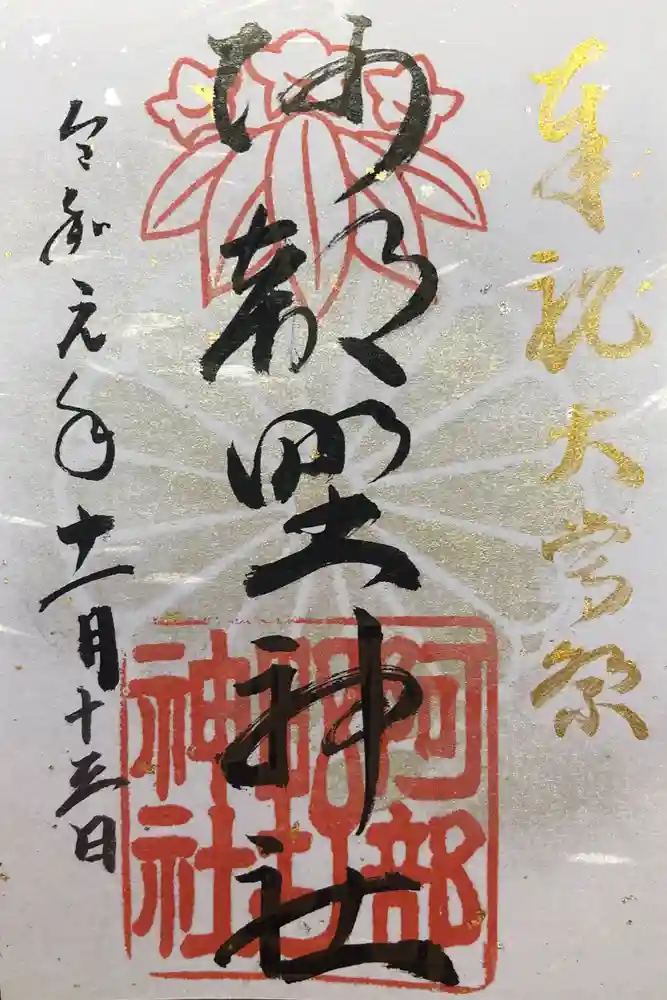 奉祝大嘗祭
阿部野神社
阿部
野
神社
令和元年十一月十五日